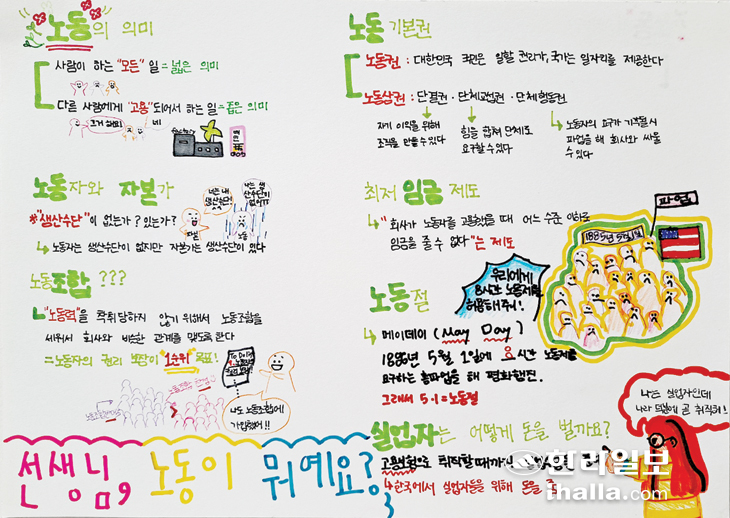 노동의 의미
사람이 하는 "모든" 일 = 넓은 의미
다른 사람에게 "고용"되어서 하는 일 = 좁은 의미
네
노동자와 자본가
*"생산수단"이 없는가? 있는가?
노동자는 생산수단이 없지만 자본가는 생산수단이 있다
나는 내
생산수단이
나는 생
산수단이
없어ㅠㅠ
자본
노동
노동조합 ???
"노동력"을 착취 당하지 않기 위해서 노동조합을
세워서 회사와 비슷한 관계를 맺도록 한다
=노동자의 권리 보장이 "1순위" 목표!
To Do List
나도 노동조합에
가입해야!!
선생님, 노동이 뭐예요?
노동 기본권
노동권 : 대한민국 국민은 일할 권리가, 국가는 일자리를 제공한다
노동삼권 : 단결권 · 단체교섭권 · 단체행동권
자기 이익을 위해
조직을 만들 수 있다
힘을 합쳐 단체로
요구할 수 있다
노동자의 요구가 거절될 시
파업을 해 회사와 싸울
수 있다
최저 임금 제도
"회사가 노동자를 고용했을 때 어느 수준 이하로
임금을 줄 수 없다"는 제도
파업
1886년 5월 1일
우리에게
8시간 노동제를
허용해줘!
노동절
메이데이 (May Day)
1886년 5월 1일에 8시간 노동제를
요구하는 총파업을 해 평화행진.
그래서 5.1=노동절
실업자는 어떻게 돈을 벌까요?
고용보험으로 취직할 때까지
한국에서 실업자들을 위해 돈을
나는 실업자인데
나라 덕분에 곧 취직해!
한라일보
ihalla.com